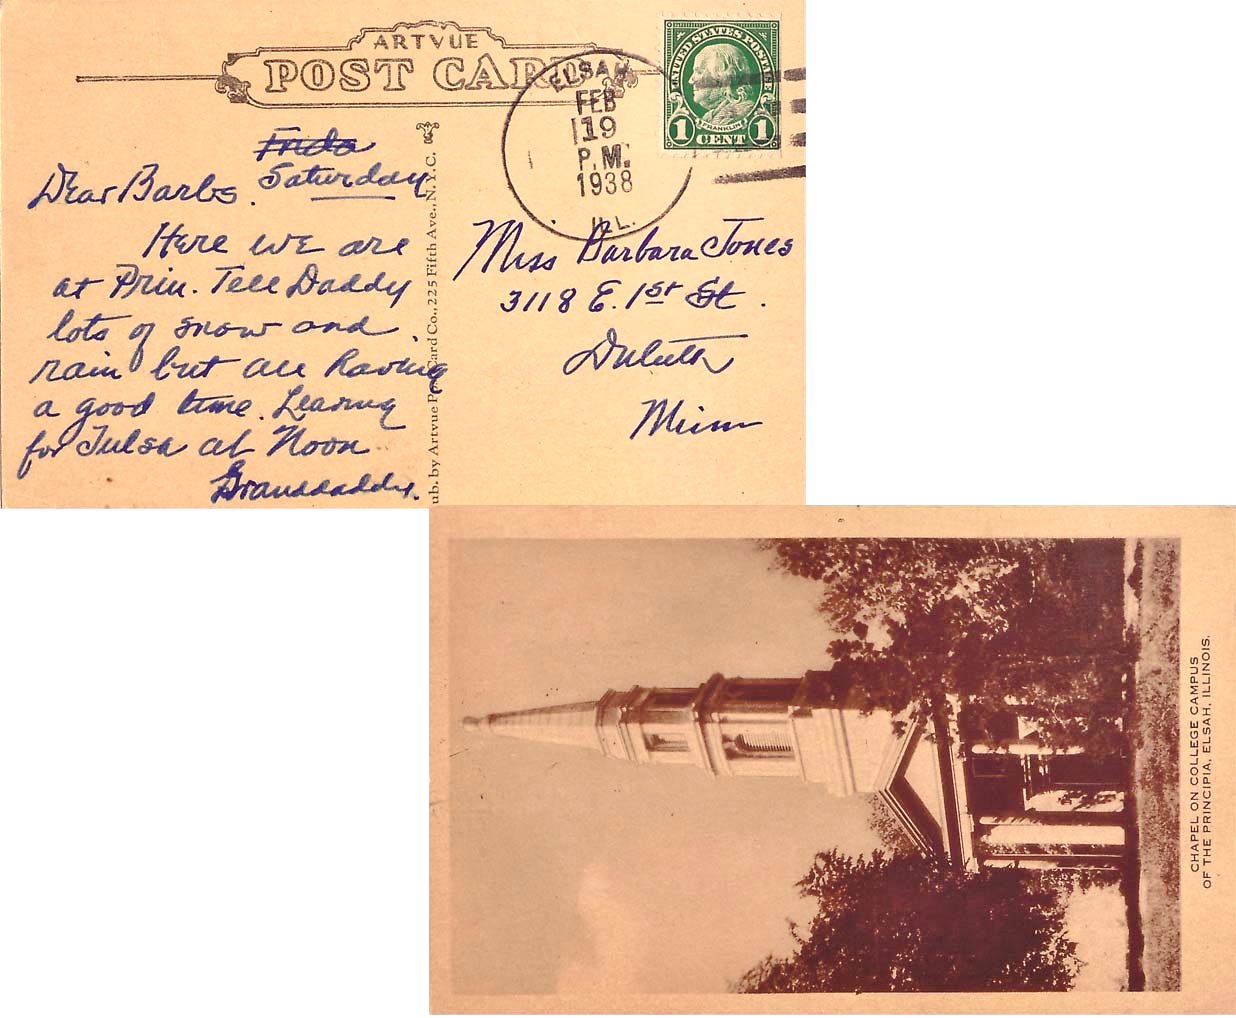 ARTVUE
POST CARD
UNITED STATES POSTAGE
FRANKLIN
1 CENT 1
ELSAH
FEB
19
P.M.
1938
ILL.
Friday
Saturday
Dear Barbs.
Here we are
at Prin. Tell Daddy
lots of snow and
rain but all having
a good time. Leaving
for Tulsa at Noon
Granddaddy.
ub. by Artvue Post Card Co., 225 Fifth Ave., N.Y.C.
Miss Barbara Jones
3118 E. 1st St.
Duluth
Minn
CHAPEL ON COLLEGE CAMPUS
OF THE PRINCIPIA, ELSAH, ILLINOIS.